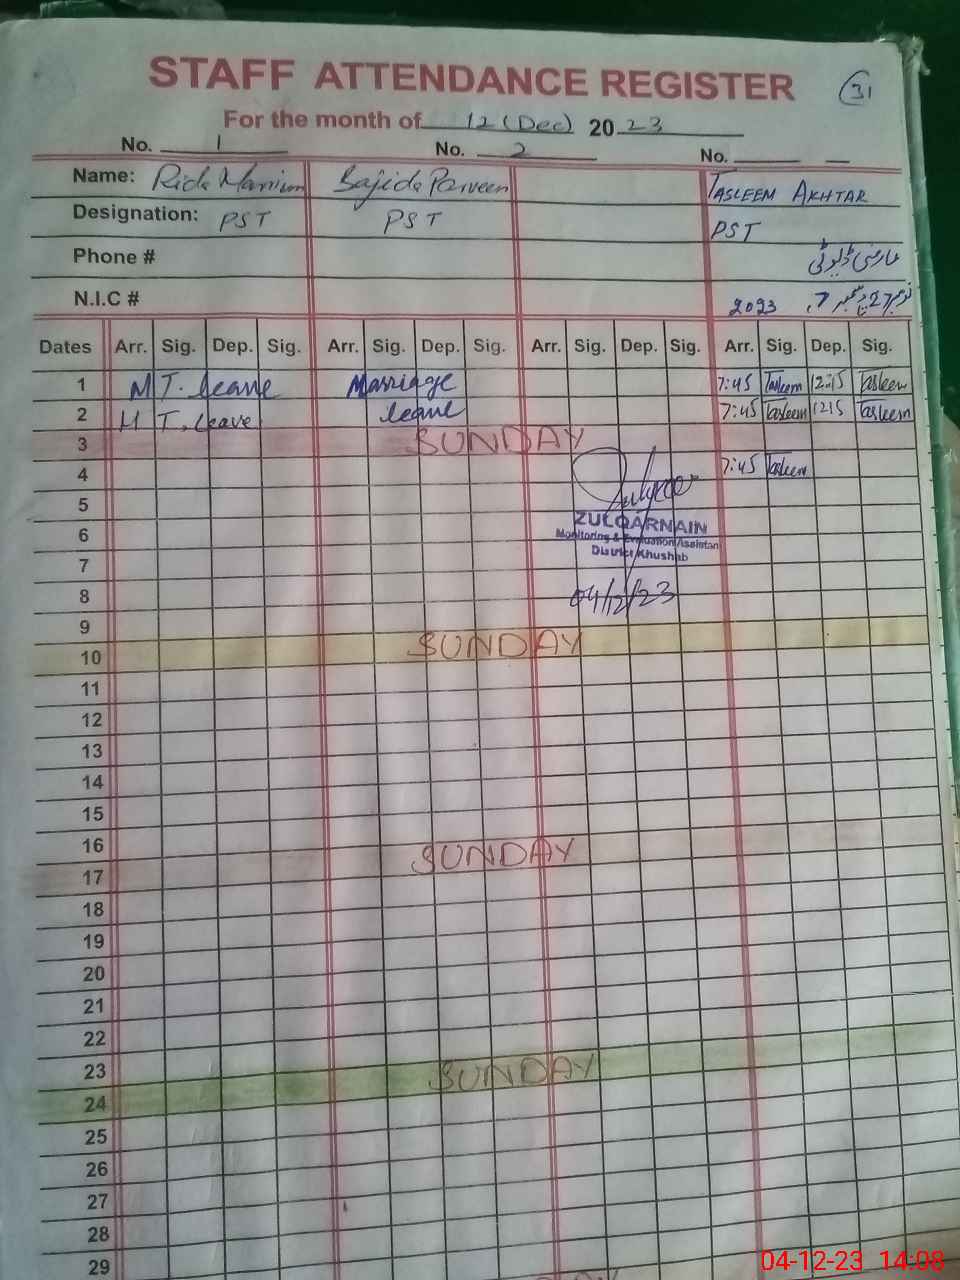 STAFF ATTENDANCE REGISTER
31
For the month of 12 (Dec) 2023
No. 1 No. 2 No.
Name: Rida Marium Sajida Parveen TASLEEM AKHTAR
Designation: PST PST PST
Phone # عارضی ڈیوٹی
N.I.C # 27 نومبر تا 7 دسمبر 2023
Dates Arr. Sig. Dep. Sig. Arr. Sig. Dep. Sig. Arr. Sig. Dep. Sig. Arr. Sig. Dep. Sig.
1 M T. leave Marriage 7:45 Tasleem 12:15 Tasleem
2 M T. leave leave 7:45 Tasleem 1215 Tasleem
3 SUNDAY
4 7:45 Tasleem
5
6 ZULQARNAIN
Monitoring & Evaluation Assistan
7 District Khushab
8 04/12/23
9
10 SUNDAY
11
12
13
14
15
16
17 SUNDAY
18
19
20
21
22
23
24 SUNDAY
25
26
27
28
29
04-12-23 14:08